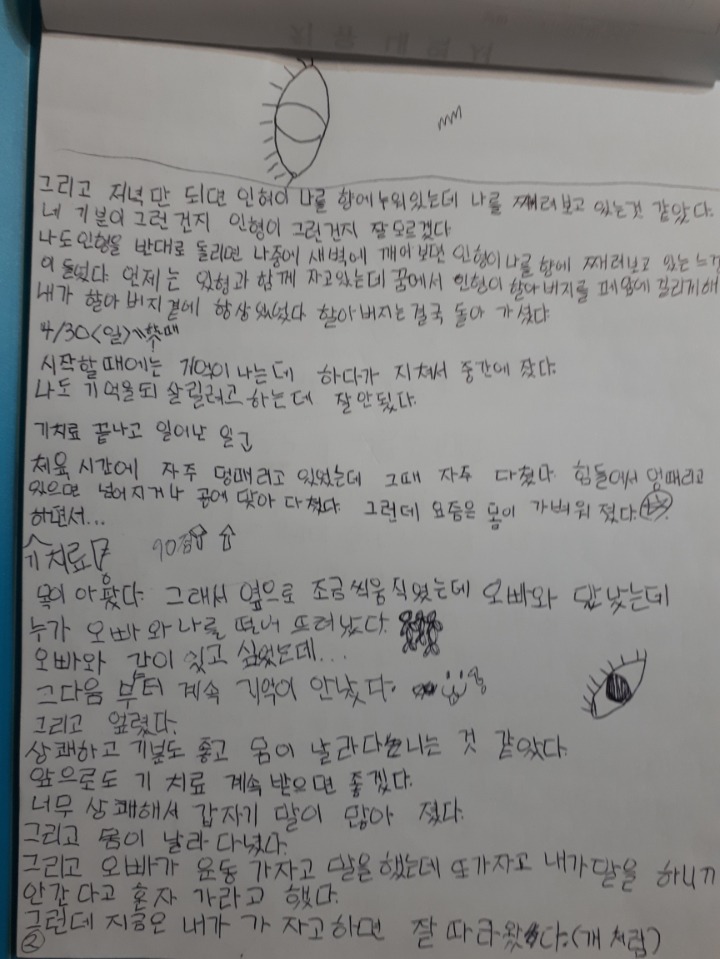 그리고 저녁만 되면 인혀이 나를 향에 누워있는데 나를 째러보고 있는것 같았다.
네 기분이 그런건지 인형이 그런건지 잘 모르겠다
나도 인형을 반대로 돌리면 나중에 새벽에 깨어 보면 인형이 나를 향에 째러보고 있는 느낌
이 들었다. 언제는 인형과 함께 자고있는데 꿈에서 인형이 할아버지를 폐암에 걸리게해
내가 할아버지곁에 항상 있었다 할아버지는 결국 돌아 가셨다
4/30<일>
시작할 때에는 기억이 나는데 하다가 지쳐서 중간에 잤다.
나도 기억을 되 살릴려고 하는데 잘 안됬다.
기치료 끝나고 일어난 일
체육 시간에 자주 멍때리고 있었는데 그때 자주 다쳤다. 힘들어서 멍때리고
있으면 넘어지거나 공에 맞아 다쳤다. 그런데 요즘은 몸이 가벼워 졌다.
하면서...
기치료 90점
목이 아팠다. 그래서 옆으로 조금씩 움직였는데 오빠와 만났는데
누가 오빠와 나를 떨어 뜨려놨다.
오빠와 같이 있고 싶었는데...
그다음 부터 계속 기억이 안났다.
그리고
상쾌하고 기분도 좋고 몸이 날라다니는 것 같았다.
앞으로도 기 치료 계속 받으면 좋겠다.
너무 상쾌해서 갑자기 말이 많아 졌다.
그리고 몸이 날라 다녔다.
그리고 오빠가 운동 가자고 말을 했는데 또가자고 내가 말을 하니까
안간다고 혼자 가라고 했다.
그런데 지금은 내가 가 자고하면 잘 따라왔다.(개 처럼)
②